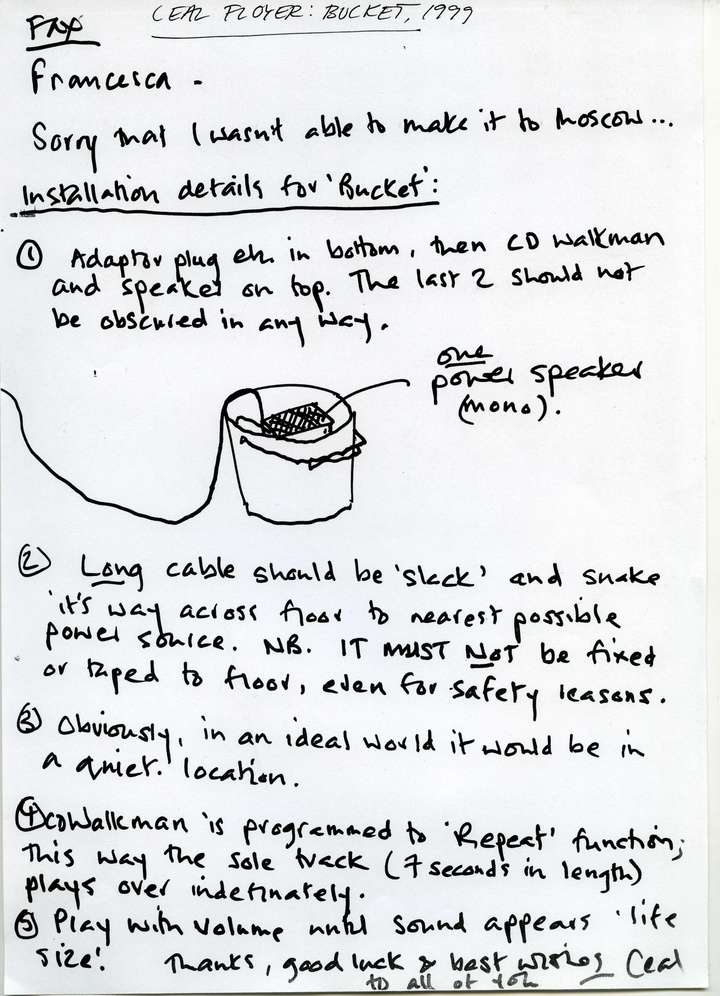 CEAL FLOYER: BUCKET, 1999
Fax
Francesca -
Sorry that I wasn't able to make it to Moscow...
Installation details for 'Bucket':
① Adaptor plug etc. in bottom, then CD walkman
and speaker on top. The last 2 should not
be obscured in any way.
one
power speaker
(mono).
② Long cable should be 'slack' and snake
it's way across floor to nearest possible
power source. NB. IT MUST NOT be fixed
or taped to floor, even for safety reasons.
③ Obviously, in an ideal world it would be in
a quiet location.
④ CD Walkman is programmed to 'Repeat' function;
this way the sole track (7 seconds in length)
plays over indefinately.
⑤ Play with volume until sound appears 'life
size'. Thanks, good luck & best wishes Ceal
to all of you